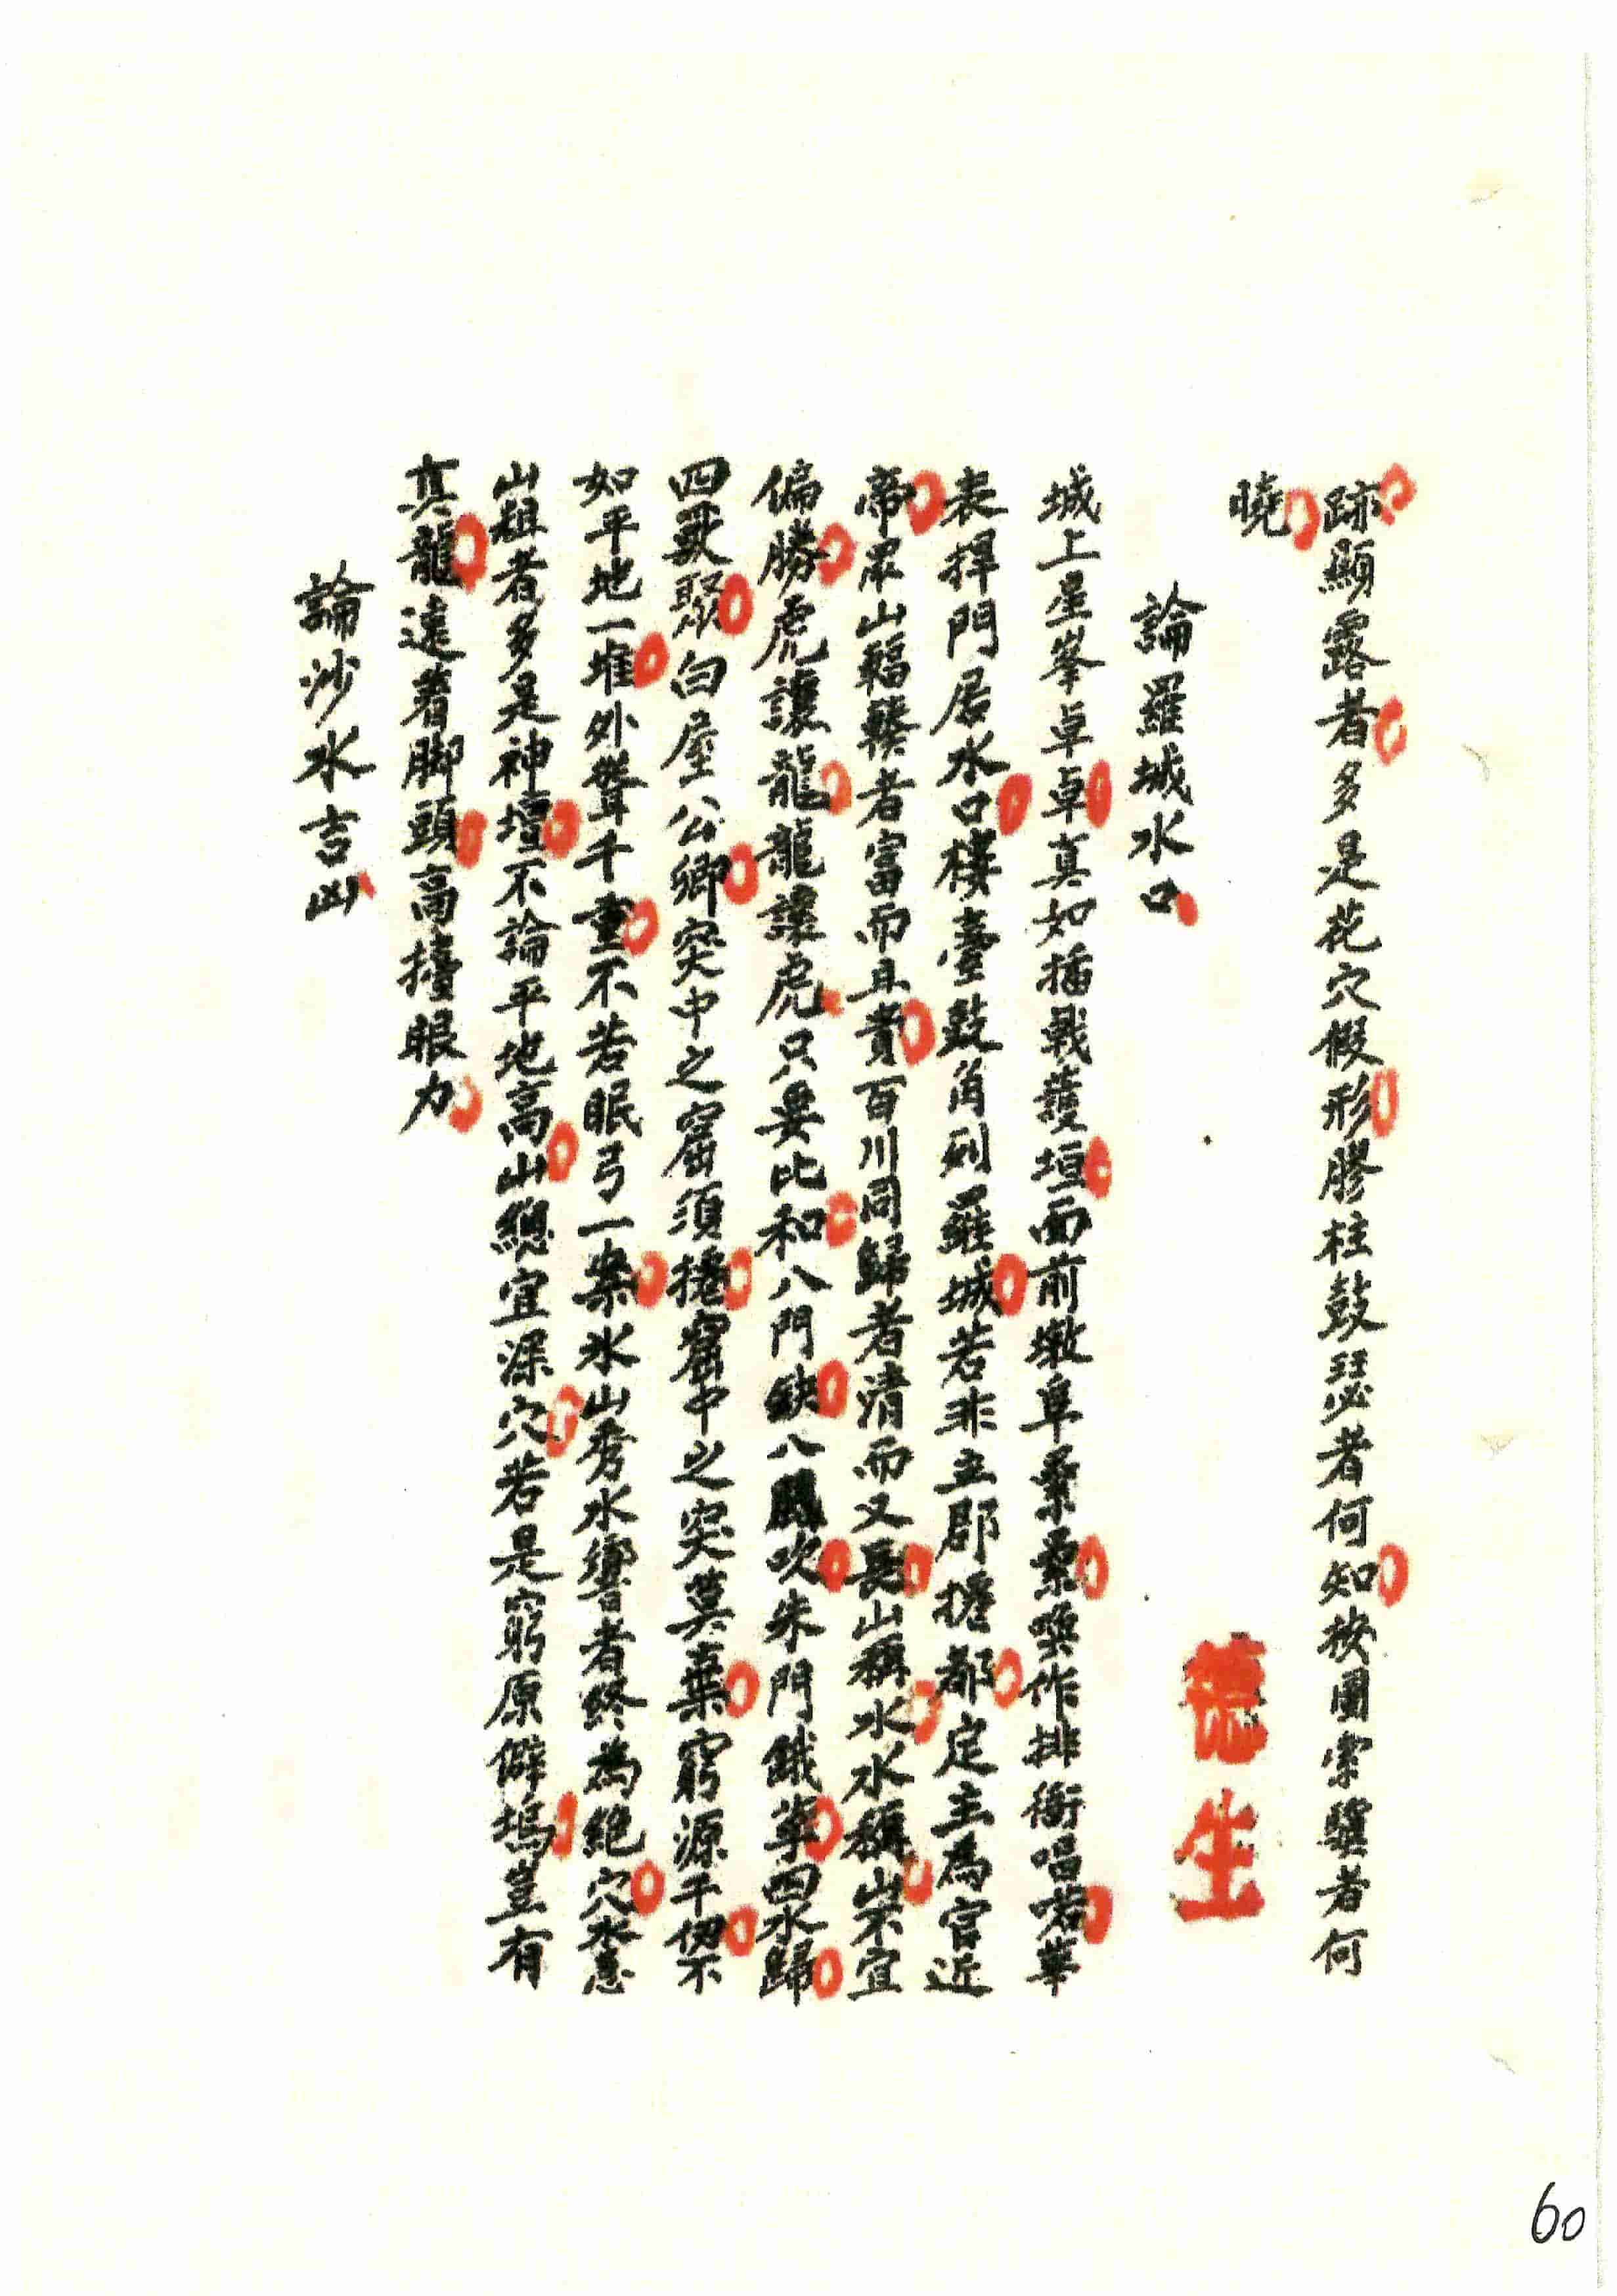 跡顯露者多是花穴假形膠柱鼓瑟者何知按圖索驥者何
曉
德生
論羅城水口
城上星峯卓卓真如插戟護垣面前墩阜纍纍喚作排衙唱喏華
表捍門居水口樓臺鼓角列羅城若非立郡遷都定主為官近
帝眾山輻輳者富而且貴百川同歸者清而又長山稱水水稱山不宜
偏勝虎讓龍龍讓虎只要比和八門缺八風吹朱門餓莩四水歸
四獸聚白屋公卿突中之窟須扦窟中之突莫棄窮源千仞不
如平地一堆外聳千重不若眠弓一案水山秀水響者終為絕穴水急
山粗者多是神壇不論平地高山總宜深穴若是窮原僻塢豈有
真龍遠着脚頭高擡眼力
論沙水吉凶
60